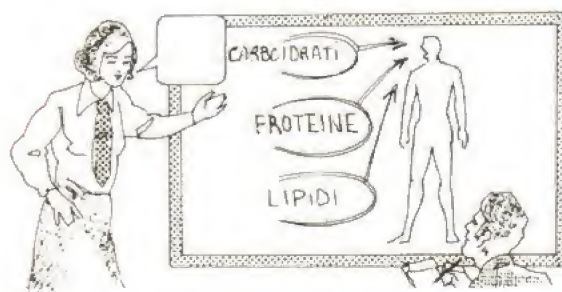 CARBOIDRATI
PROTEINE
LIPIDI